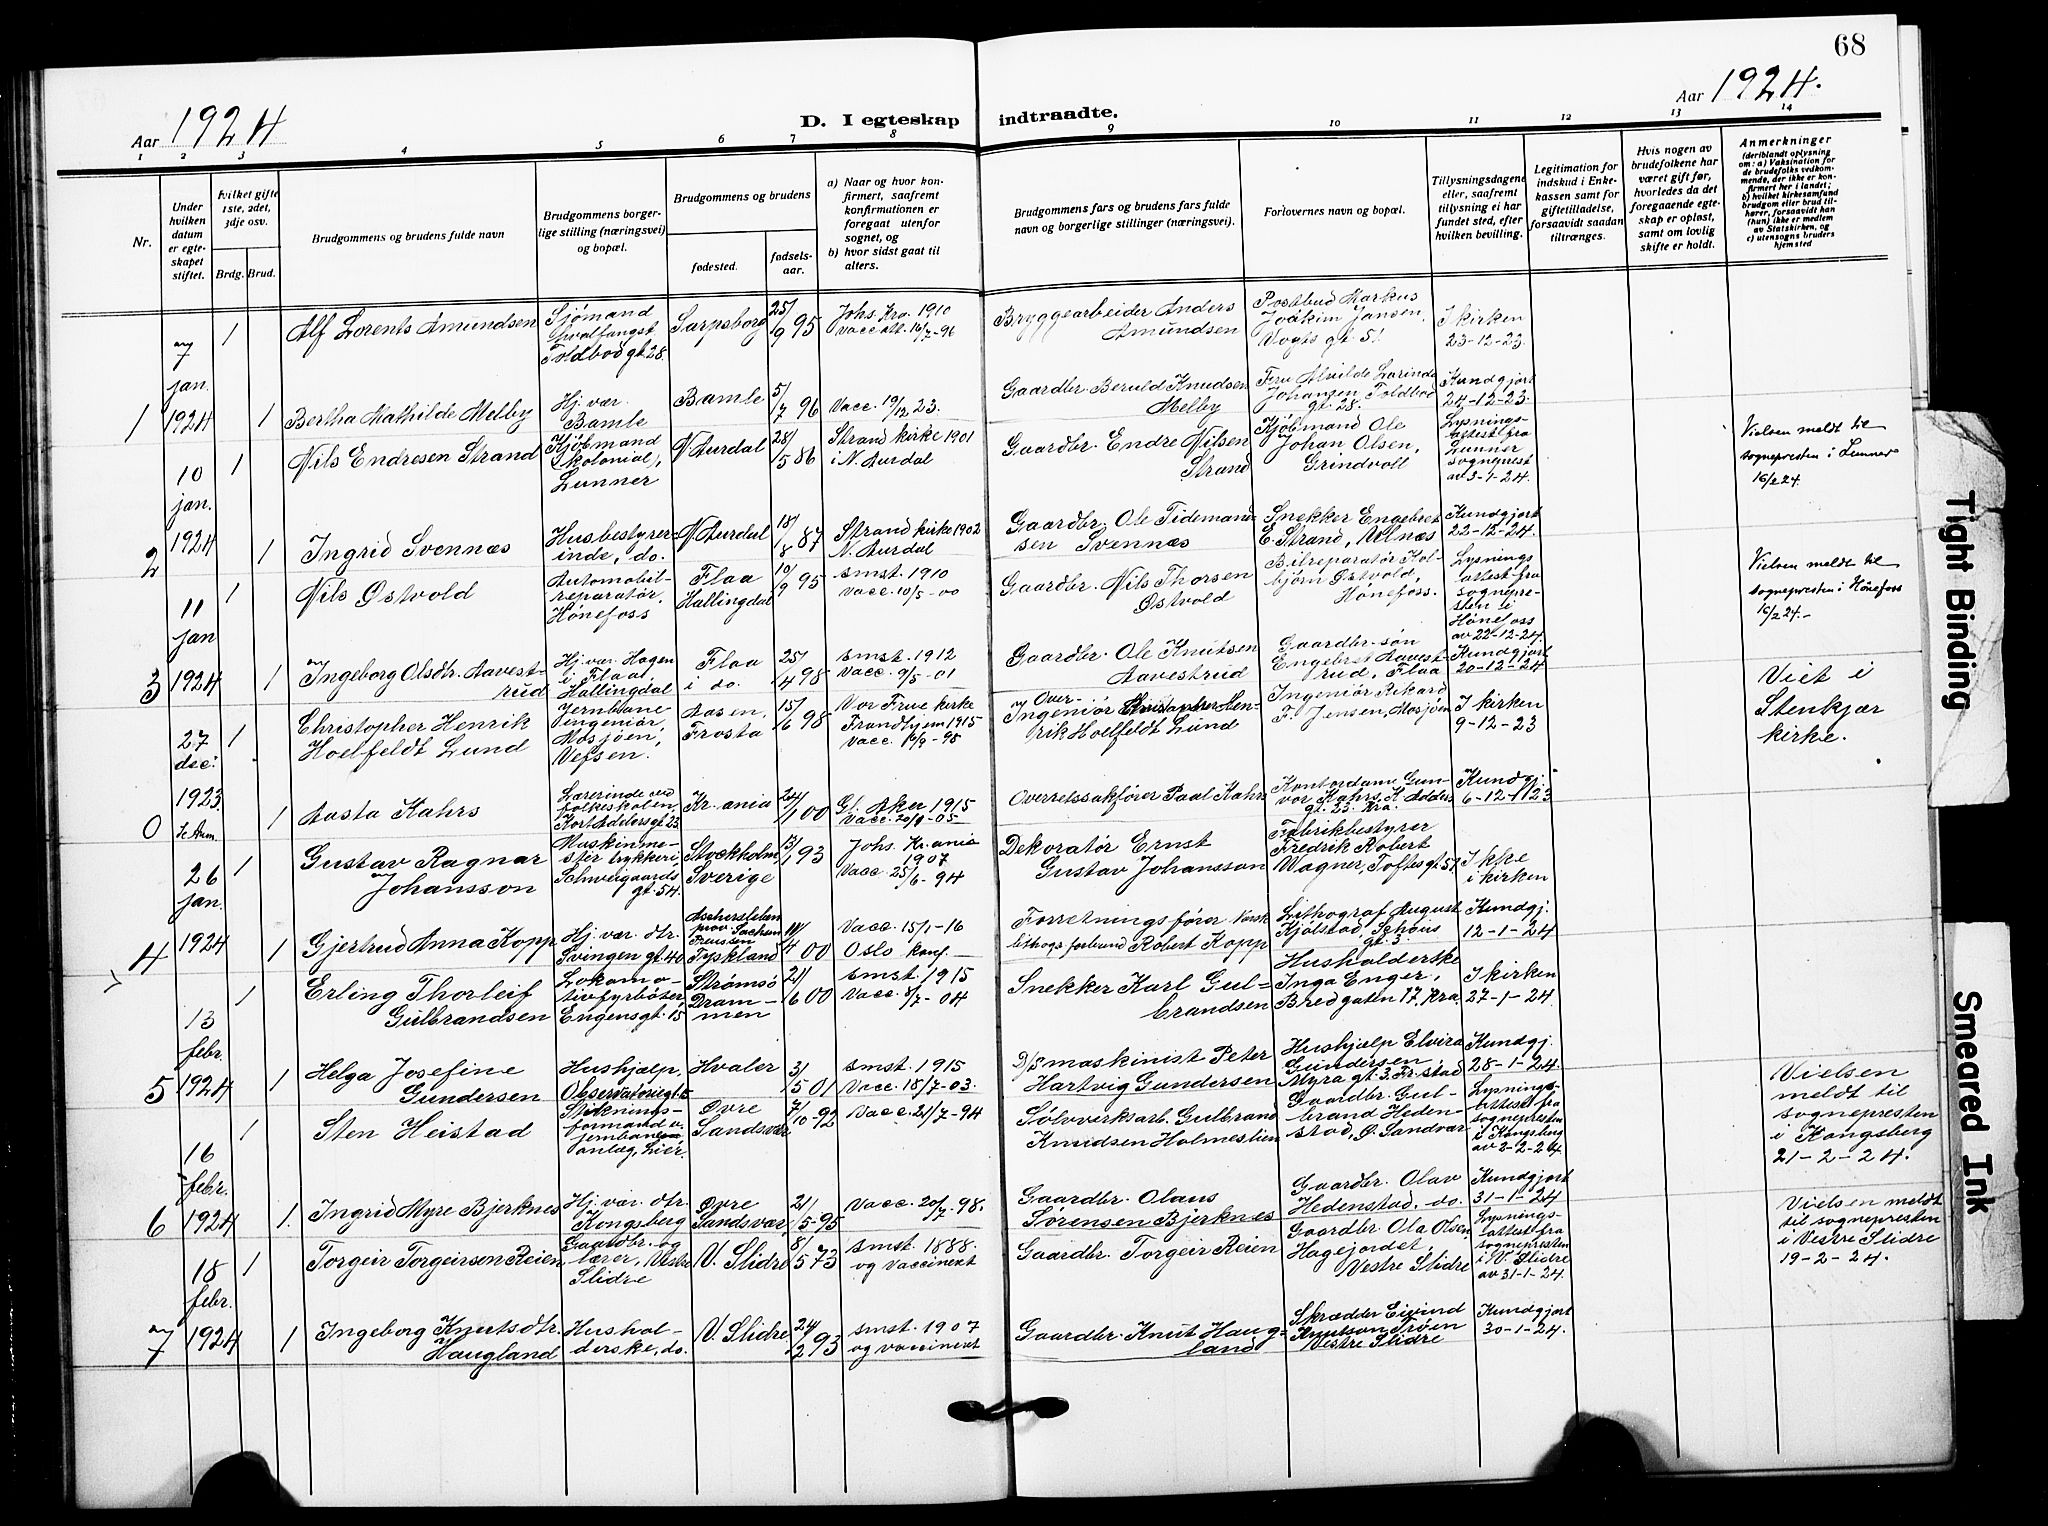 68
Aar 1924
D. I egteskap indtraadte.
Aar 1924.
1 2 3 4 5 6 7 8 9 10 11 12 13 14
Nr.
Under hvilken datum er egteskapet stiftet.
Hvilket gifte 1ste, 2det, 3dje osv.
Brdg. Brud.
Brudgommens og brudens fulde navn
Brudgommens borgerlige stilling (næringsvei) og bopæl.
Brudgommens og brudens
fødested.
fødselsaar.
a) Naar og hvor konfirmert, saafremt konfirmutionen er foregaat utenfor sognet, og
b) hvor sidst gaat til alters.
Brudgommens fars og brudens fars fulde navn og borgerlige stillinger (næringsvei).
Forlovernes navn og bopæl.
Tillysningsdagene eller, saafremt tillysning ei har fundet sted, efter hvilken bevilling.
Legitimation for indskud i Enkekassen samt for giftetilladelse, forsaavidt saadan tiltrænges.
Hvis nogen av brudefolkene har været gift før, hvorledes da det foregaaende egteskap er opløst, samt om lovlig skifte er holdt.
Anmerkninger
(deriblandt oplysning om: a) Vaksination for de brudefolks vedkommende, der ikke er konfirmert her i landet; b) hvilket kirkesamfund brudgom eller brud tilhører, forsaavidt han (hun) ikke er medlem av Statskirken, og c) utensogns bruders hjemsted
1
7 jan. 1924
1 Alf Lorents Amundsen
Sjømand hvalfangst Toldbodgt 28.
Sarpsborg 25/9 95
Johs. Kra. 1910
Vacc att. 16/7-96
Bryggearbeider Anders Amundsen
Postbud Markus Joakim Jansen, Vogts gt. 51
I kirken 23-12-23.
1 Bertha Mathilde Melby
Hj. vær. Bamle
Bamle 5/7 96
Vacc. 19/12 23.
Gaardbr. Beruld Knudsen Melby
Fru Alvilde Larinda Johansen, Toldbod gt. 28.
Kundgjort 24-12-23.
2
10 jan. 1924
1 Nils Endresen Strand
Kjøbmand (kolonial), Lunner
N. Aurdal 28/5 86
Strand kirke 1901 i N. Aurdal
Gaardbr. Endre Nilsen Strand
Kjøbmand Ole Johan Olsen, Grindvoll
Lysningsattest fra Lunner sogneprest av 3-1-24.
Vielsen meldt til sognepresten i Lunner 16/2 24.
1 Ingrid Svennæs
Husbestyrerinde, do.
N. Aurdal 18/8 87
Strand kirke 1902 N. Aurdal
Gaardbr. Ole Tidemandsen Svennæs
Snekker Engebret E. Strand, Ulnæs
Kundgjort 22-12-24.
3
11 jan 1924
1 Nils Østvold
Automobilreparatør, Hønefoss
Flaa Hallingdal 10/9 95
smst. 1910
Vacc. 10/5-00
Gaardbr. Nils Thorsen Østvold
Bilreparatør Kolbjørn Østvold, Hønefoss.
Lysningsattest fra sognepresten i Hønefoss av 22-12-24.
Vielsen meldt til sognepresten i Hønefoss 16/2 24.-
1 Ingeborg Olsdtr. Aavestrud
Hj. vær. Hagen i Flaa, Hallingdal
Flaa i do. 25/4 98
smst. 1912
Vacc. 9/5-01
Gaardbr. Ole Knutsen Aavestrud
Gaardbr.-søn Engebret Aavestrud, Flaa
Kundgjort 20-12-24
0
27 dec. 1923
1 Christopher Henrik Hoelfeldt Lund
Jernbaneingeniør, Mosjøen, Vefsen.
Aasen, Frosta 15/6 98
Vor Frue kirke Trondhjem 1915
Vacc. 16/9-98
Over-Ingeniør Christopher Henrik Hoelfeldt Lund
Ingeniør Rikard F. Jensen, Mosjøen
I kirken 9-12-23
Viet i Stenkjær kirke.
1 Aasta Kahrs
Lærerinde ved folkeskolen, Kort Adelersgt 23
Kr.ania 24/1 00
Gl. Aker 1915
Vacc. 20/9-05
Overretssakfører Paal Kahrs
Kontordame Gunvor Kahrs, K. Adelers gt. 23. Kra.
Kundgj. 6-12-1923
4
26 jan. 1924
1 Gustav Ragnar Johansson
Maskinmester trykkeri Schweigaards gt. 54.
Stockholm Sverige 13/1 93
Johs. Kr.ania 1907
Vacc. 25/6-94
Dekoratør Ernst Gustav Johansson
Fabrikbestyrer Fredrik Robert Wagner, Toftesgt 57.
Ikke i kirken
1 Gjertrud Anna Kopp
Hj. vær. dtr. Svingen gt. 40
Aschersleben prov. Sachsen Preussen Tyskland 11/4 00
Vacc. 15/1-16
Oslo konf.
Forretningsfører norsk lithogr. forbund Robert Kopp
Lithograf August Kjølstad, Schous gt. 3.
Kundgj. 12-1-24
5
13 febr. 1924
1 Erling Thorleif Gulbrandsen
Lokomotivfyrbøter Engensgt. 15
Strømsø Drammen 21/6 00
smst. 1915
Vacc. 8/7-04
Snekker Karl Gulbrandsen
Husholderske Inga Enger, Bredgaten 17. Kra.
I kirken 27-1-24.
1 Helga Josefine Gundersen
Hushjælp, Observatoriegt.5
Hvaler 3/5 01
smst. 1915
Vacc. 18/7-03.
D/s maskinist Peter Hartvig Gundersen
Hushjælp Elvira Gundersen Myra gt. 3. Fr.stad
Kundgj. 28-1-24.
6
16 febr. 1924
1 Sten Heistad
Stikningsformand v. jernbaneanlæg, Lier.
Øvre Sandsvær 7/10-92
Vacc. 21/7-94
Sølvverksarb. Gulbrand Knudsen Holmestien
Gaardbr. Gulbrand Hedenstad, Ø. Sandsvær
Lysningsattest fra sognepresten i Kongsberg av 2-2-24.
Vielsen meldt til sognepresten i Kongsberg 21-2-24.
1. Ingrid Myre Bjerknes
Hj. vær. dtr. Kongsberg
Øvre Sandsvær 21/5-95
Vacc. 20/7-98.
Gaardbr. Olaus Sørensen Bjerknes
Gaardbr. Olav Hedenstad, do.
Kundgjort 31-1-24
7
18 febr. 1924
1 Torgeir Torgeirson Reien
Gaardbr. og lærer, Vestre Slidre
V. Slidre 8/5 73
smst. 1888. og vaccinert
Gaardbr. Torgeir Reien
Gaardbr. Ola Olsen Hagejordet, Vestre Slidre
Lysningsattest fra sognepresten i V. Slidre av 31-1-24.
Vielsen meldt til sognepresten i Vestre Slidre 19-2-24.
1 Ingeborg Knutsdtr. Haugland
Husholderske, do.
V. Slidre 24/2 93
smst. 1907 og vaccinert
Gaardbr. Knut Haugland
Skrædder Eivind Knutson Trøen Vestre Slidre
Kundgjort 30-1-24.
Tight Binding
Smeared Ink